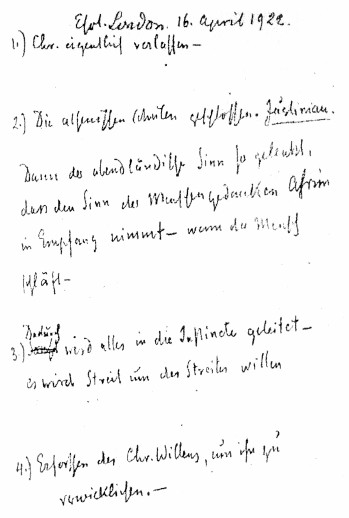 Exot. London. 16. April 1922.
1.) Chr. eigentlich verlassen –
2.) Die athenischen Schulen geschlossen. Justinian.
Dann der abendländische Sinn so gelenkt,
dass den Sinn des Menschengedanken Ahriman
in Empfang nimmt – wenn der Mensch
schläft –
Dadurch
3.) wird alles in die Instincte geleitet –
es wird Streit um des Streites willen
4.) Erforschen des Chr. Willens, um ihn zu
verwirklichen. –